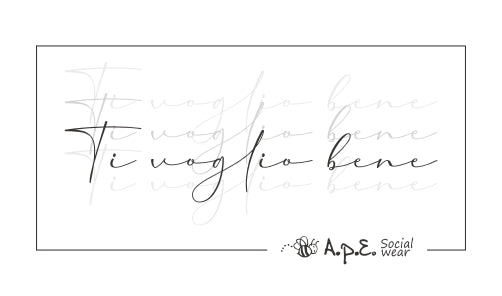 Ti voglio bene
Ti voglio bene
Ti voglio bene
Ti voglio bene
A.p.E. Social
wear